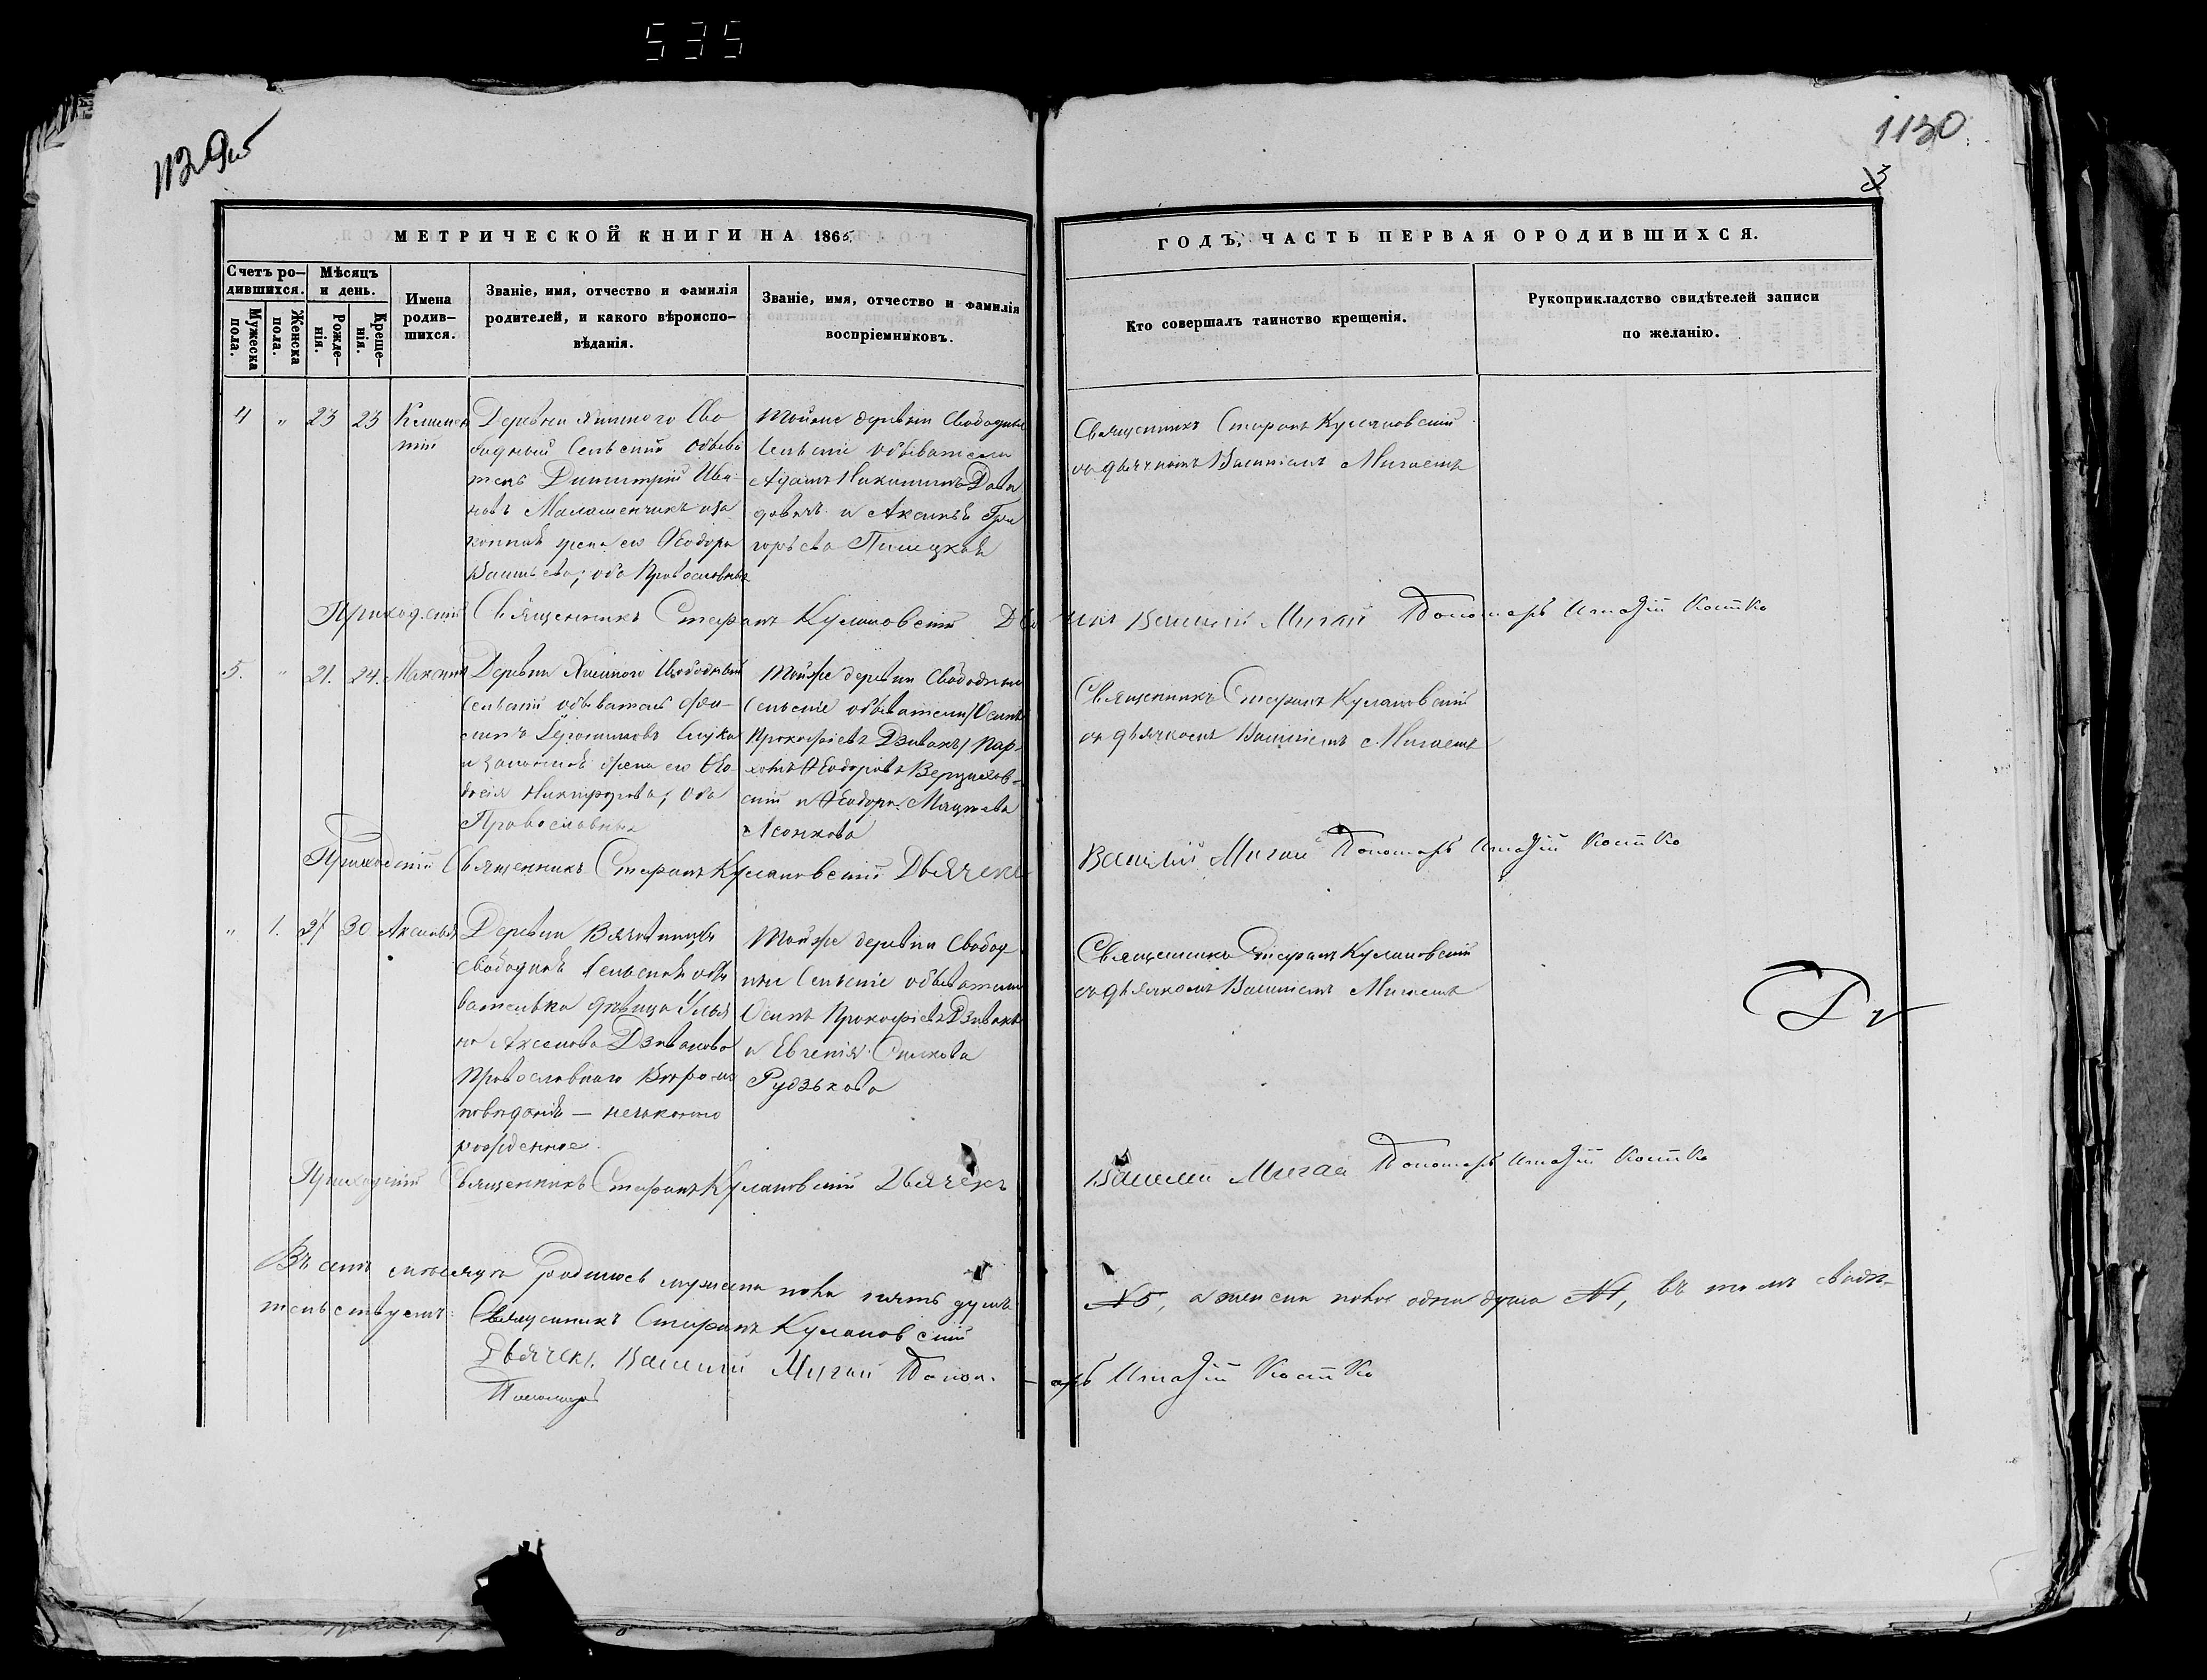 535
1130
3
МЕТРИЧЕСКОЙ КНИГИ НА 1865
ГОДЪ, ЧАСТЬ ПЕРВАЯ О РОДИВШИХСЯ.
Счетъ ро-
дившихся.
Мужеска
пола.
Женска
пола.
Мѣсяцъ
и день.
Рожде-
нія.
Креще-
нія.
Имена
родив-
шихся.
Званіе, имя, отчество и фамилія
родителей, и какого вѣроиспо-
вѣданія.
Званіе, имя, отчество и фамилія
воспріемниковъ.
Кто совершалъ таинство крещенія.
Рукоприкладство свидѣтелей записи
по желанію.
4 " 23 23
Деревни Сво
бодный Сельскій Обыва
тель Димитрій Ива
новъ Малашенчикъ и за
конная жена его Ѳеодора
Васильева; оба Православные
Тойже деревни Свободные
Сельскіе обыватели
Адамъ Никитинъ Дави
довичъ и Аксинья Гри
горьева
Священникъ Стефанъ Кулаковскій
съ дьячкомъ Василіемъ Мигаемъ
Приходскій Священникъ Стефанъ Кулаковскій Дьячекъ Василій Мигай Пономарь Игнатій Костко
5. " 21. 24. Максимъ
Деревни Свободный
Сельскій обыватель
и законная жена его Ѳео
досія Никифорова; Оба
Православные
Тойже деревни Свободные
Сельскіе обыватели Осипъ
Прокофіевъ Дзивакъ Пар-
хомъ Ѳеодоровъ Вержихов-
скій и Ѳеодора
Асонкова
Священникъ Стефанъ Кулаковскій
съ дьячкомъ Василіемъ Мигаемъ
Приходскій Священникъ Стефанъ Кулаковскій Дьячекъ
Василій Мигай Пономарь Игнатій Костко
" 1. 27 30 Аксинья
Деревни
свободная сельская обы
вателька дѣвица Улья
на Аксенова Дзивакова
Православнаго Вѣроис
повѣданія — незаконно
рожденное.
Тойже деревни Свобод
ные Сельскіе обыватели
Осипъ Прокофіевъ Дзивакъ
и Евгенія
Рудзькова
Священникъ Стефанъ Кулаковскій
съ дьячкомъ Василіемъ Мигаемъ
Приходскій Священникъ Стефанъ Кулаковскій Дьячекъ
Василій Мигай Пономарь Игнатій Костко
Въ семъ мѣсяцѣ родилось мужеска пола пять душъ
№5, а женска пола одна душа №1, въ томъ свидѣ-
тельствуетъ: Священникъ Стефанъ Кулаковскій
Дьячекъ Василій Мигай Пономарь Игнатій Костко
Пономарь